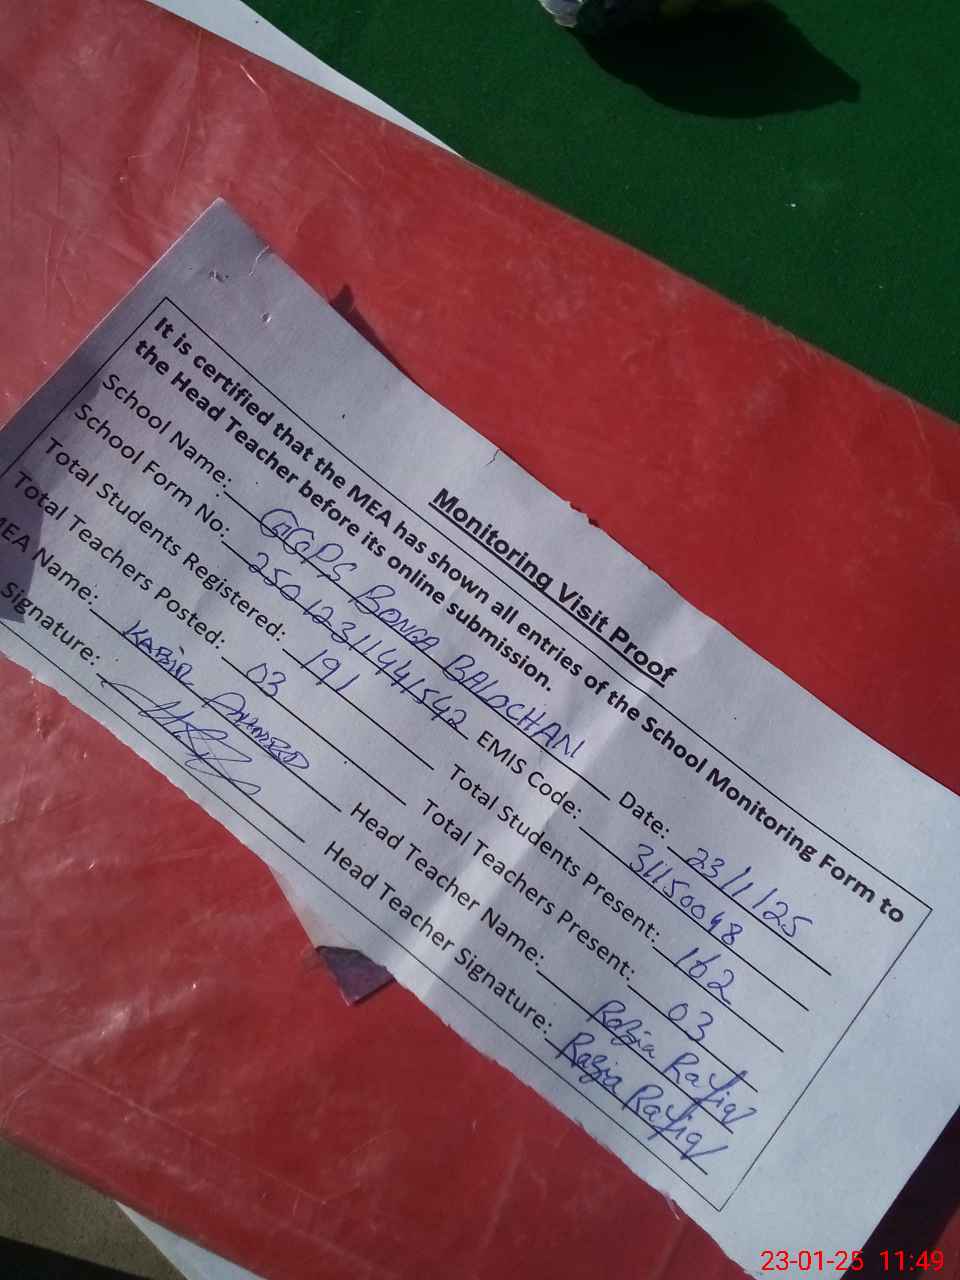 Monitoring Visit Proof
It is certified that the MEA has shown all entries of the School Monitoring Form to
the Head Teacher before its online submission.
School Name: GGPS BONGA BALOCHAN Date: 23/1/25
School Form No: 2501231141542 EMIS Code: 31150048
Total Students Registered: 191 Total Students Present: 162
Total Teachers Posted: 03 Total Teachers Present: 03
MEA Name: KABIR AHMED Head Teacher Name: Razia Rafiq
Signature: Head Teacher Signature: Razia Rafiq
23-01-25 11:49